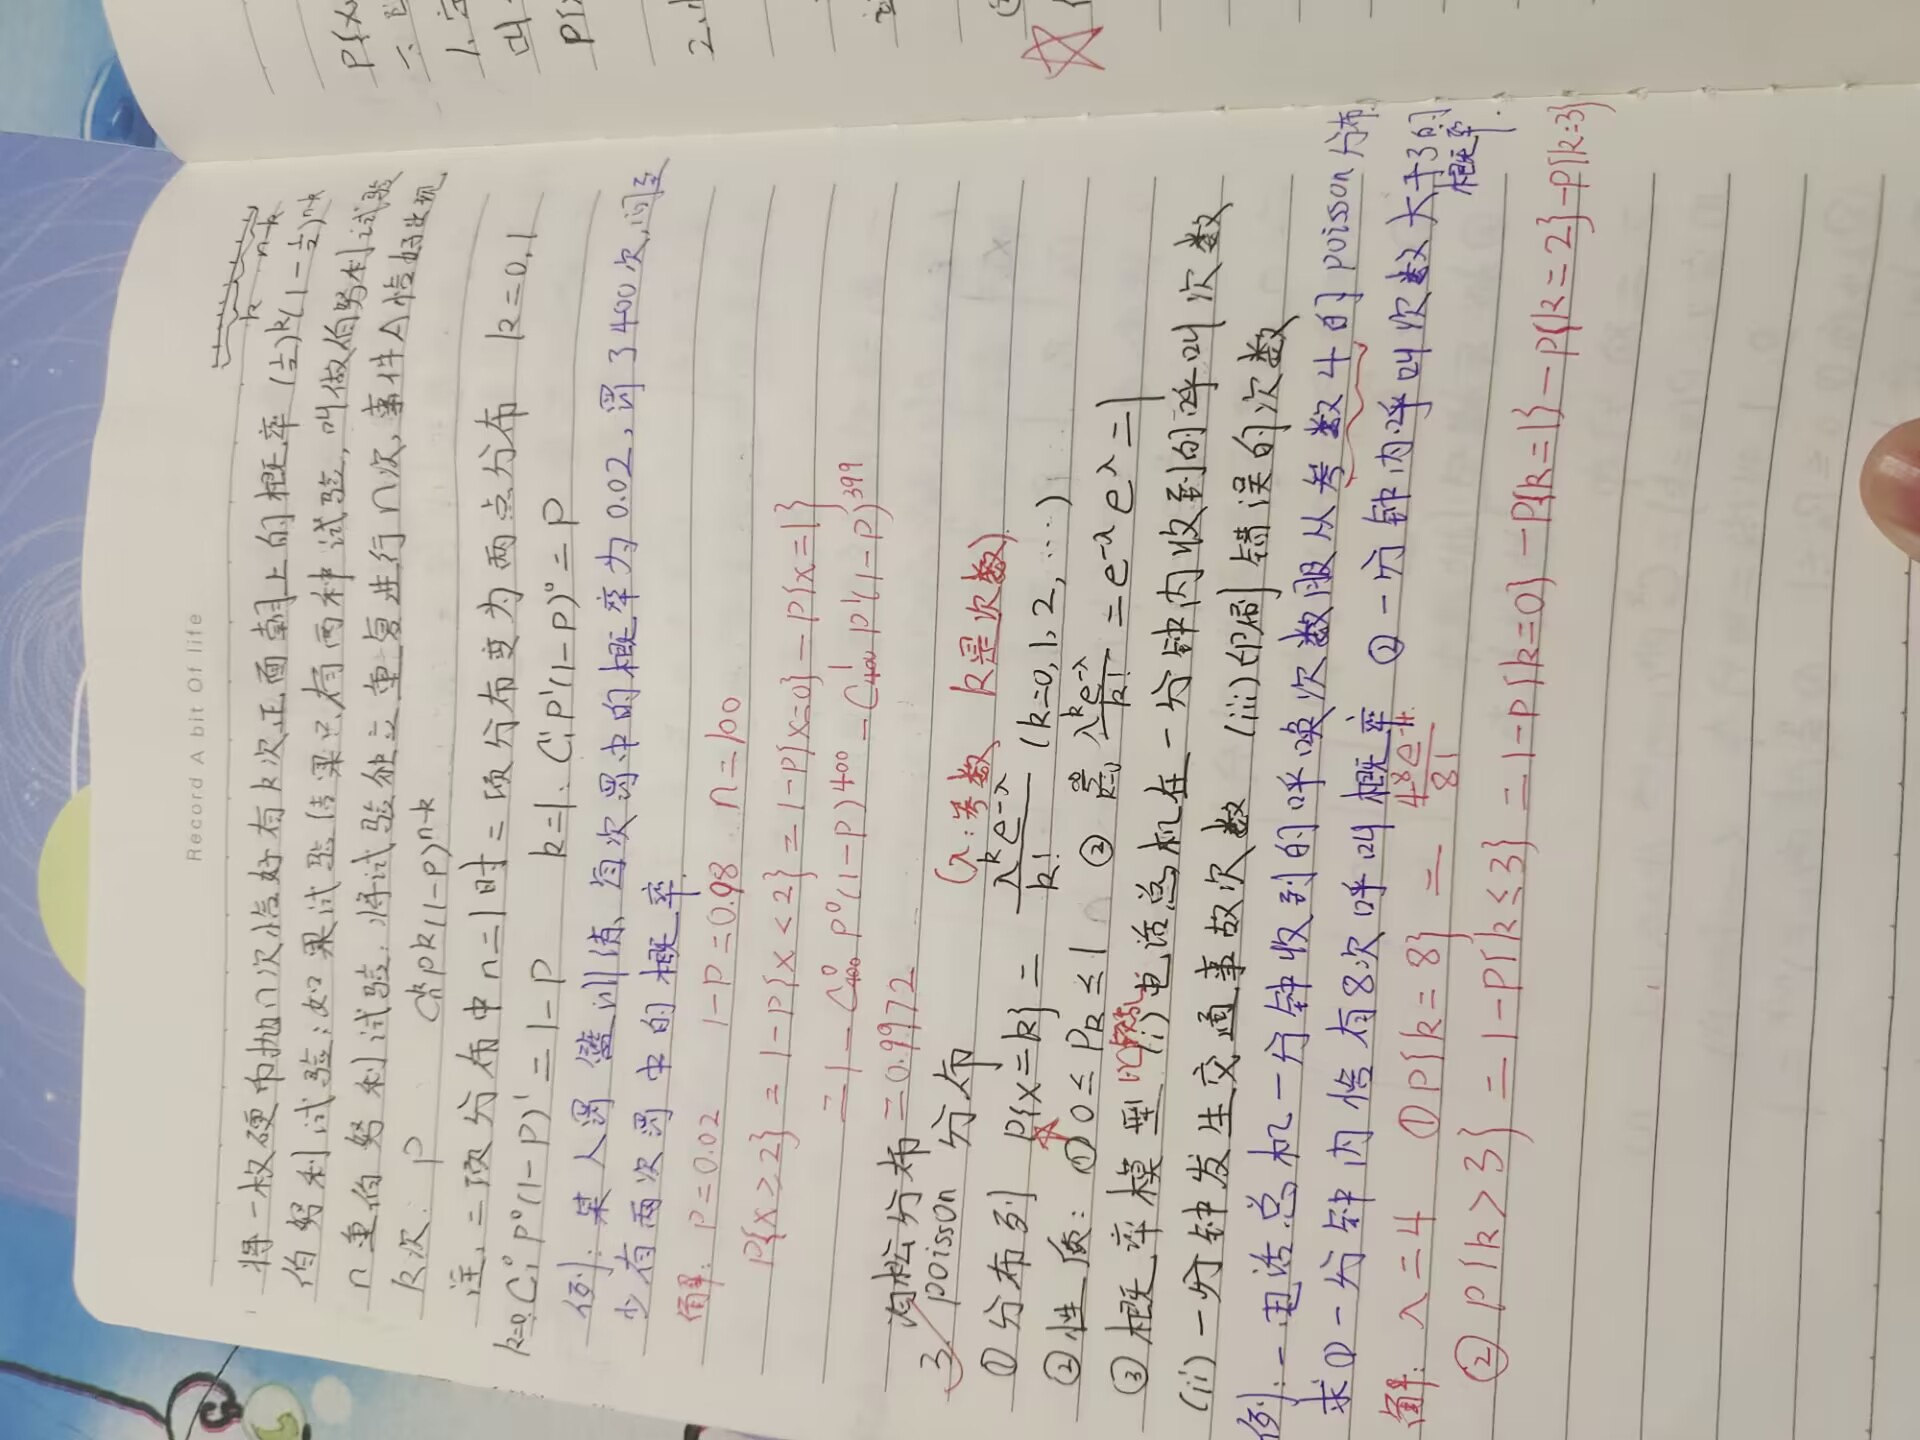 Record A bit Of life
将一枚硬币抛n次恰好有k次正面朝上的概率 (1/2)^k(1-1/2)^n-k
k n-k
伯努利试验:如果试验结果只有两种试验,叫做伯努利试验
n重伯努利试验:将试验独立重复进行n次,事件A恰好出现
k次. P C^k_n P^k(1-P)^n-k
注,二项分布中n=1时二项分布变为两点分布 k=0,1
k=0. C_1^0 P^0(1-P)^1=1-P k=1. C_1^1P^1(1-P)^0=P
例:某人罚篮训练,每次罚中的概率为0.02,罚了400次,问至
少有两次罚中的概率.
解: P=0.02 1-P=0.98 n=100
P{x≥2}=1-P{x<2}=1-P{x=0}-P{x=1}
=1-C^0_400 P^0(1-P)^400-C^1_400 P^1(1-P)^399
=0.9972
泊松分布
3. poisson 分布 (λ:参数 k是次数)
① 分布列 P{x=k}=λ^k e^-λ/k! (k=0,1,2,…)
② 性质: ① 0≤P_k≤1 ② ∞Σk=0 λ^k e^-λ/k! =e^-λ e^λ=1
③ 概率模型 (i)电话总机在一分钟内收到的呼叫次数
(ii)一分钟发生交通事故次数 (iii)印刷错误的次数
例:一电话总机一分钟收到的呼唤次数服从参数4的poisson分布.
求①一分钟内恰有8次呼叫概率 ②一分钟内呼叫次数大于3的概率.
解: λ=4 ①P{k=8}=4^8e^-4/8!
②P{k>3}=1-P{k≤3}=1-P{k=0}-P{k=1}-P{k=2}-P{k=3}
P{x
二.
1.
叫
P{
2.